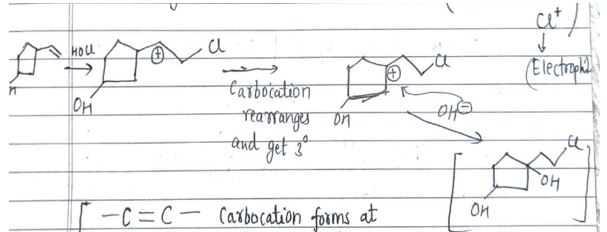 Cl⁺
HOCl
⊕
Cl
(Electroph
OH
Carbocation
rearranges
and get 3°
⊕
Cl
OH
OH⊖
Cl
OH
OH
[ -C=C- Carbocation forms at